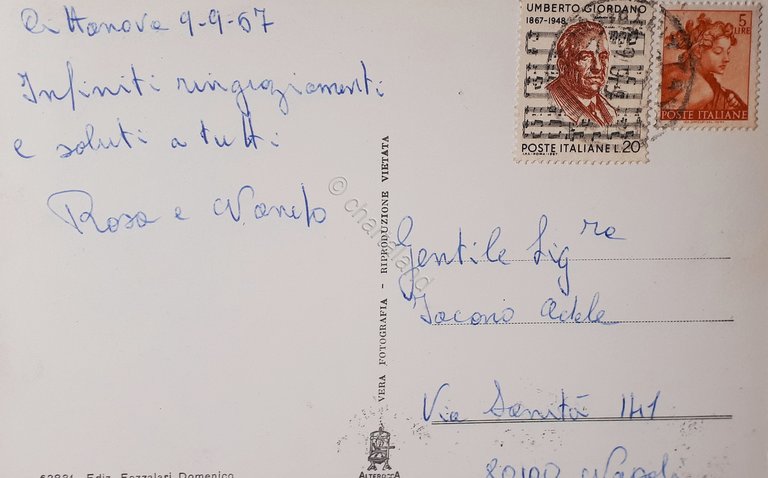 Cittanova 9-9-67
Infiniti ringraziamenti
e saluti a tutti
Rosa e
UMBERTO GIORDANO
1867-1948
POSTE ITALIANE L.20
I.P.S.-ROMA-1967
5
LIRE
POSTE ITALIANE
VERA FOTOGRAFIA - RIPRODUZIONE VIETATA
Gentile Sig.ra
Iacono Adele
Via Sanità 141
80100 Napoli
62881 Ediz. Fazzalari Domenico
ALTEROCCA
© charleland